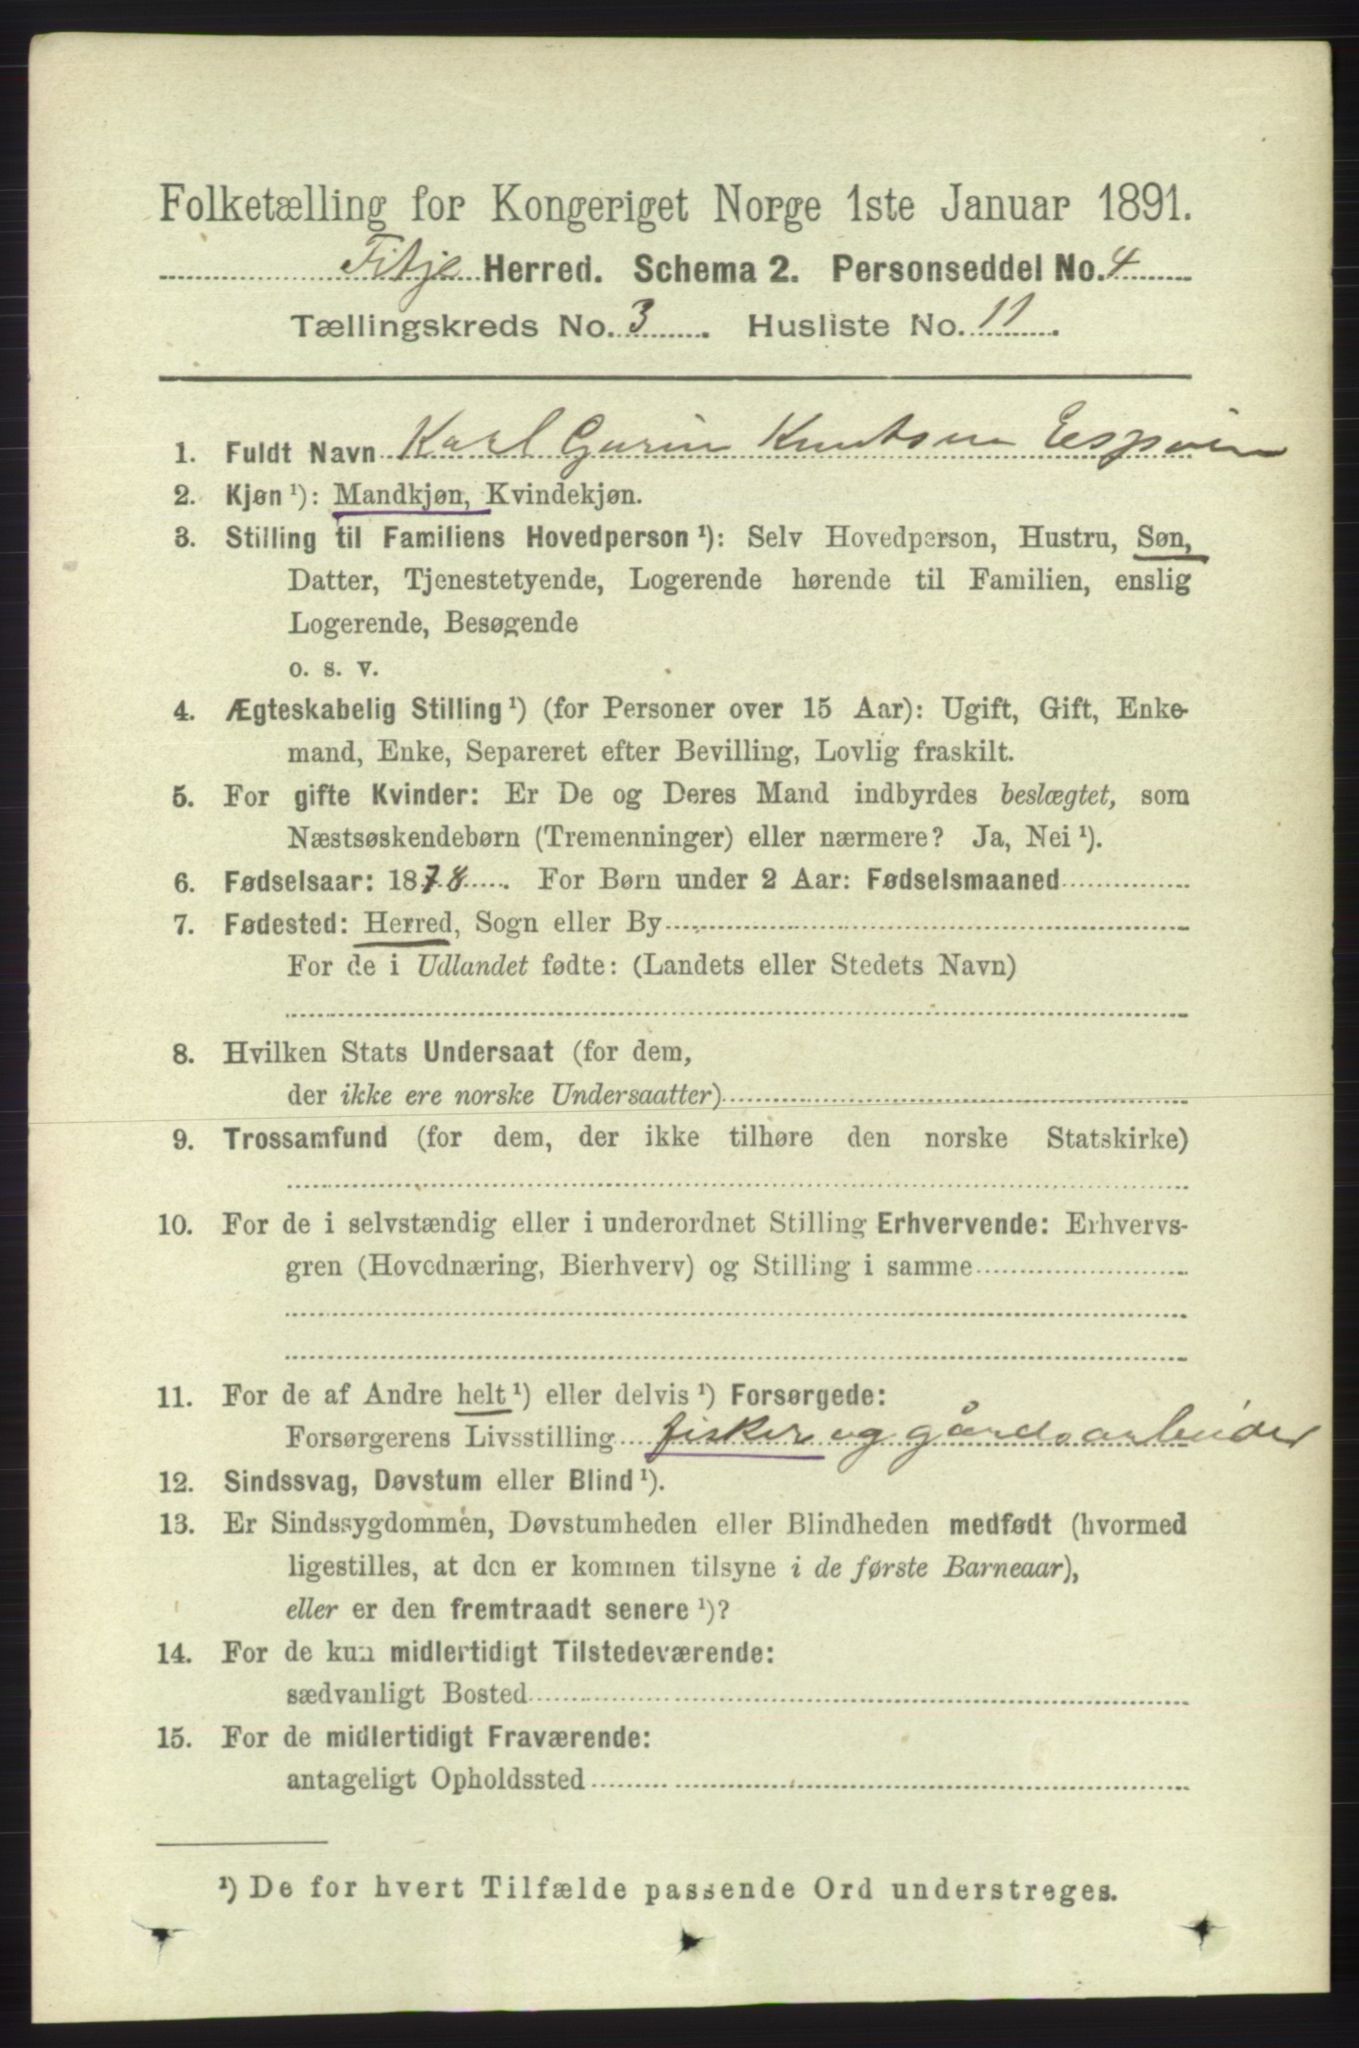 Folketælling for Kongeriget Norge 1ste Januar 1891.
Fitje Herred. Schema 2. Personseddel No. 4
Tællingskreds No. 3. Husliste No. 11.
1. Fuldt Navn Karl Knutsen
2. Kjøn ¹): Mandkjøn, Kvindekjøn.
3. Stilling til Familiens Hovedperson ¹): Selv Hovedperson, Hustru, Søn,
Datter, Tjenestetyende, Logerende hørende til Familien, enslig
Logerende, Besøgende
o. s. v.
4. Ægteskabelig Stilling ¹) (for Personer over 15 Aar): Ugift, Gift, Enke-
mand, Enke, Separeret efter Bevilling, Lovlig fraskilt.
5. For gifte Kvinder: Er De og Deres Mand indbyrdes beslægtet, som
Næstsøskendebørn (Tremenninger) eller nærmere? Ja, Nei ¹).
6. Fødselsaar: 1878. For Børn under 2 Aar: Fødselsmaaned
7. Fødested: Herred, Sogn eller By
For de i Udlandet fødte: (Landets eller Stedets Navn)
8. Hvilken Stats Undersaat (for dem,
der ikke ere norske Undersaatter)
9. Trossamfund (for dem, der ikke tilhøre den norske Statskirke)
10. For de i selvstændig eller i underordnet Stilling Erhvervende: Erhvervs-
gren (Hovednæring, Bierhverv) og Stilling i samme
11. For de af Andre helt ¹) eller delvis ¹) Forsørgede:
Forsørgerens Livsstilling fisker og gårdsarbeider
12. Sindssvag, Døvstum eller Blind ¹).
13. Er Sindssygdommen, Døvstumheden eller Blindheden medfødt (hvormed
ligestilles, at den er kommen tilsyne i de første Barneaar),
eller er den fremtraadt senere ¹)?
14. For de kun midlertidigt Tilstedeværende:
sædvanligt Bosted
15. For de midlertidigt Fraværende:
antageligt Opholdssted
¹) De for hvert Tilfælde passende Ord understreges.